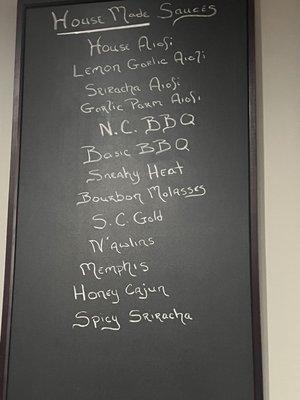 House Made Sauces
House Aioli
Lemon Garlic Aioli
Sriracha Aioli
Garlic Parm Aioli
N.C. BBQ
Basic BBQ
Sneaky Heat
Bourbon Molasses
S.C. Gold
N'awlins
Memphis
Honey Cajun
Spicy Sriracha